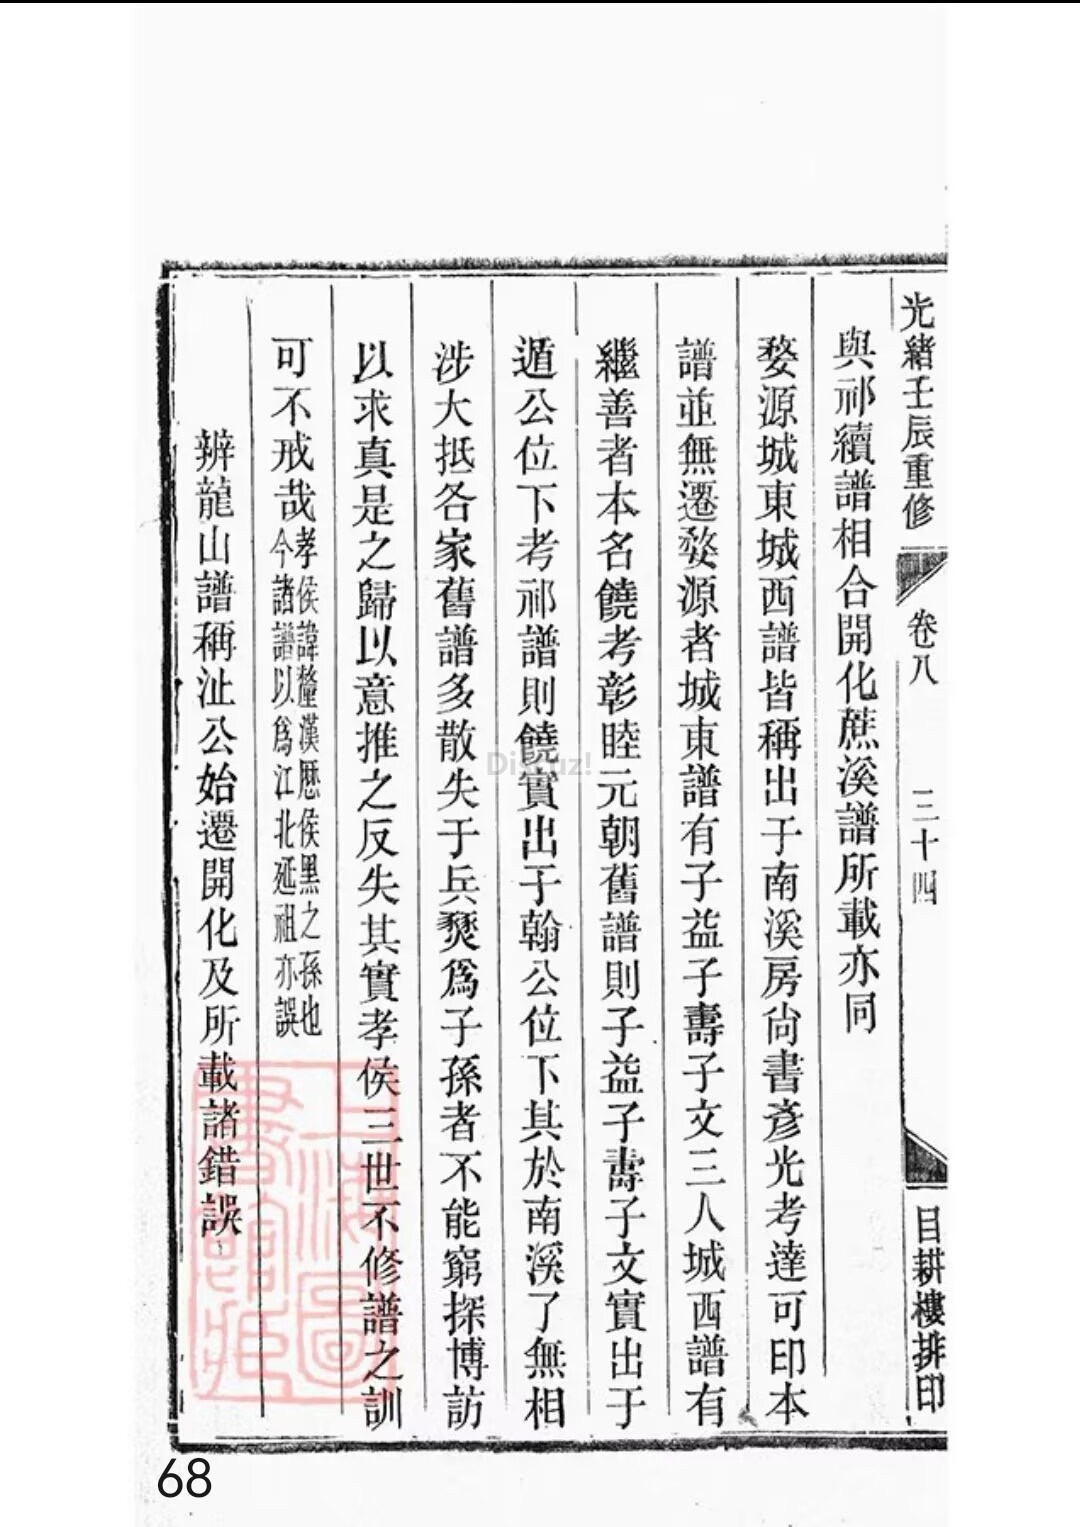 光緒壬辰重修 卷八 三十四 目耕樓排印
與祁續譜相合開化蔗溪譜所載亦同
婺源城東城西譜皆稱出于南溪房尙書彥光考達可印本
譜並無遷婺源者城東譜有子益子壽子文三人城西譜有
繼善者本名饒考彰睦元朝舊譜則子益子壽子文實出于
遁公位下考祁譜則饒實出于翰公位下其於南溪了無相
涉大抵各家舊譜多散失于兵燹爲子孫者不能窮探博訪
以求真是之歸以意推之反失其實孝侯三世不修譜之訓
可不戒哉孝侯諱釐漢愿侯黑之孫也
今諸譜以爲江北延祖亦誤
辨龍山譜稱沚公始遷開化及所載諸錯誤
上海圖
書館藏
Discuz!
68